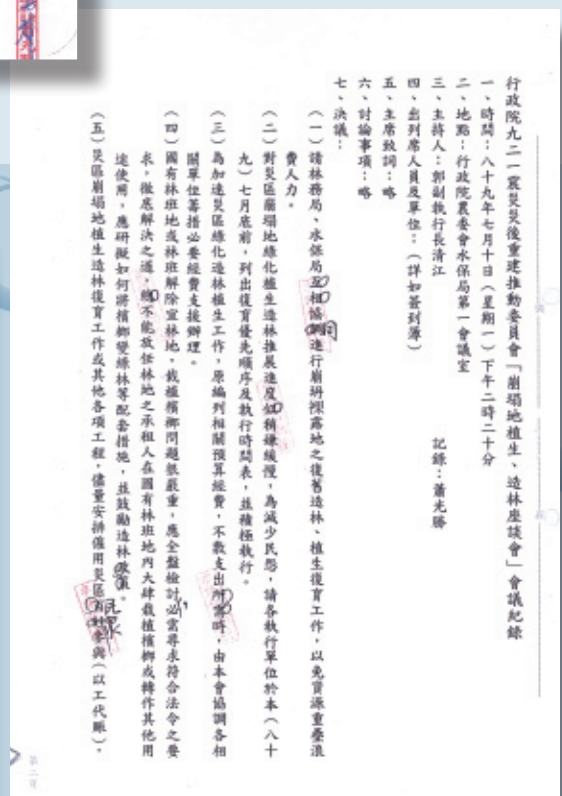 行政院九二一震災災後重建推動委員會「崩塌地植生、造林座談會」會議紀錄
一、時間：八十九年七月十日（星期一）下午二時二十分
二、地點：行政院農委會水保局第一會議室
三、主持人：郭副執行長清江
記錄：蕭光勝
四、出列席人員及單位：（詳如簽到簿）
五、主席致詞：略
六、討論事項：略
七、決議：
（一）請林務局、水保局互相協同進行崩坍裸露地之復舊造林、植生復育工作，以免資源重疊浪
費人力。
（二）對災區崩塌地綠化植生造林推展進度如稍嫌緩慢，為減少民怨，請各執行單位於本（八十
九）七月底前，列出復育優先順序及執行時間表，並積極執行。
（三）為加速災區綠化造林植生工作，原編列相關預算經費，不敷支出時，由本會協調各相
關單位籌措必要經費支援辦理。
（四）國有林班地或林班解除宜林地，栽植檳榔問題很嚴重，應全盤檢討，必需尋求符合法令之要
求，徹底解決之道，不能放任林地之承租人在國有林班地內大肆栽植檳榔或轉作其他用
途使用，應研擬如何將檳榔變綠林等配套措施，並鼓勵造林。
（五）災區崩塌地植生造林復育工作或其他各項工程，儘量安排僱用災區居民參與（以工代賑）。
第二頁